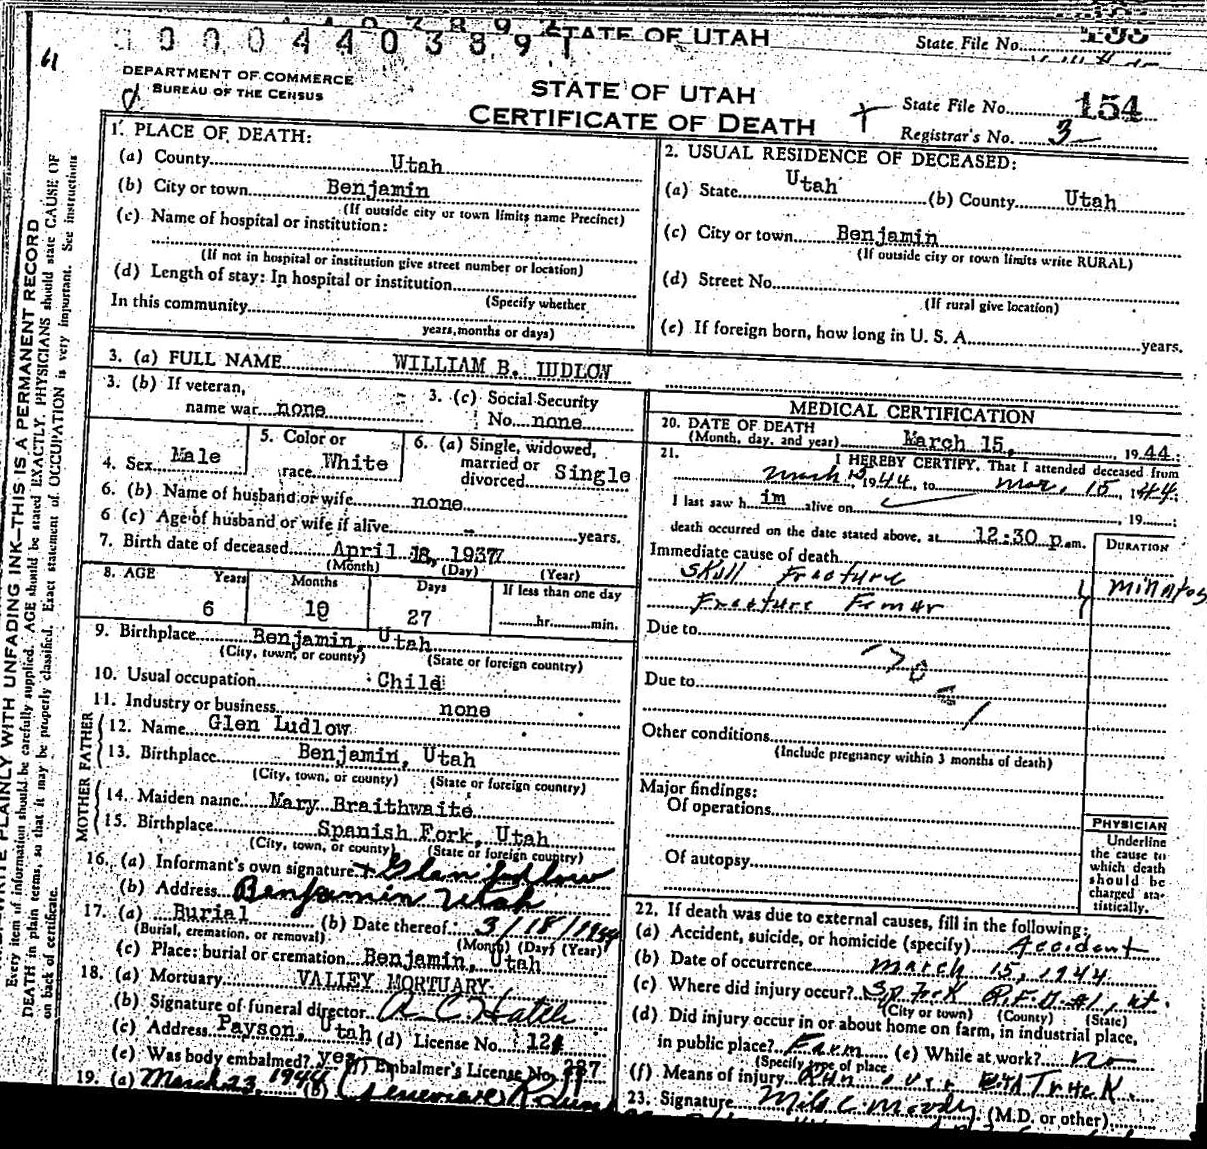 0000440389
STATE OF UTAH
State File No.
DEPARTMENT OF COMMERCE
BUREAU OF THE CENSUS
STATE OF UTAH
CERTIFICATE OF DEATH
State File No. 154
Registrar's No. 3
1. PLACE OF DEATH:
(a) County Utah
(b) City or town Benjamin
(If outside city or town limits name Precinct)
(c) Name of hospital or institution:
(If not in hospital or institution give street number or location)
(d) Length of stay: In hospital or institution
(Specify whether
In this community
years, months or days)
2. USUAL RESIDENCE OF DECEASED:
(a) State Utah (b) County Utah
(c) City or town Benjamin
(If outside city or town limits write RURAL)
(d) Street No.
(If rural give location)
(e) If foreign born, how long in U. S. A. years.
3. (a) FULL NAME WILLIAM B. LUDLOW
3. (b) If veteran,
name war none
3. (c) Social Security
No. none
4. Sex Male
5. Color or
race White
6. (a) Single, widowed,
married or
divorced Single
6. (b) Name of husband or wife none
6 (c) Age of husband or wife if alive - years.
7. Birth date of deceased April 18, 1937
(Month) (Day) (Year)
8. AGE Years Months Days If less than one day
6 10 27 hr. min.
9. Birthplace Benjamin, Utah
(City, town, or county) (State or foreign country)
10. Usual occupation Child
11. Industry or business none
FATHER
12. Name Glen Ludlow
13. Birthplace Benjamin, Utah
(City, town, or county) (State or foreign country)
MOTHER
14. Maiden name Mary Braithwaite
15. Birthplace Spanish Fork, Utah
(City, town, or county) (State or foreign country)
16. (a) Informant's own signature Glen Ludlow
(b) Address Benjamin Utah
17. (a) Burial (b) Date thereof 3/18/1944
(Burial, cremation, or removal) (Month) (Day) (Year)
(c) Place: burial or cremation Benjamin, Utah
18. (a) Mortuary VALLEY MORTUARY
(b) Signature of funeral director A. C. Hatch
(c) Address Payson, Utah (d) License No. 124
(e) Was body embalmed? yes (f) Embalmer's License No. 237
19. (a) March 23, 1944 (b) Genevieve
MEDICAL CERTIFICATION
20. DATE OF DEATH
(Month, day, and year) March 15, 1944
21. I HEREBY CERTIFY, That I attended deceased from
March 15 1944, to Mar. 15, 1944;
I last saw h im alive on , 19 ;
death occurred on the date stated above, at 12:30 p.m.
DURATION
Immediate cause of death
Skull Fracture minutes
Fracture Femur
Due to
Due to
Other conditions
(Include pregnancy within 3 months of death)
Major findings:
Of operations
Of autopsy
PHYSICIAN
Underline
the cause to
which death
should be
charged sta-
tistically.
22. If death was due to external causes, fill in the following:
(a) Accident, suicide, or homicide (specify) Accident
(b) Date of occurrence March 15, 1944
(c) Where did injury occur? Sp Fork R.F.D. #1, Ut.
(City or town) (County) (State)
(d) Did injury occur in or about home on farm, in industrial place,
in public place? Farm (e) While at work? no
(Specify type of place
(f) Means of injury Run over Truck
23. Signature Milo C. Moody (M.D. or other)
WRITE PLAINLY WITH UNFADING INK—THIS IS A PERMANENT RECORD
Every item of information should be carefully supplied. AGE should be stated EXACTLY. PHYSICIANS should state CAUSE OF
DEATH in plain terms, so that it may be properly classified. Exact statement of OCCUPATION is very important. See instructions
on back of certificate.